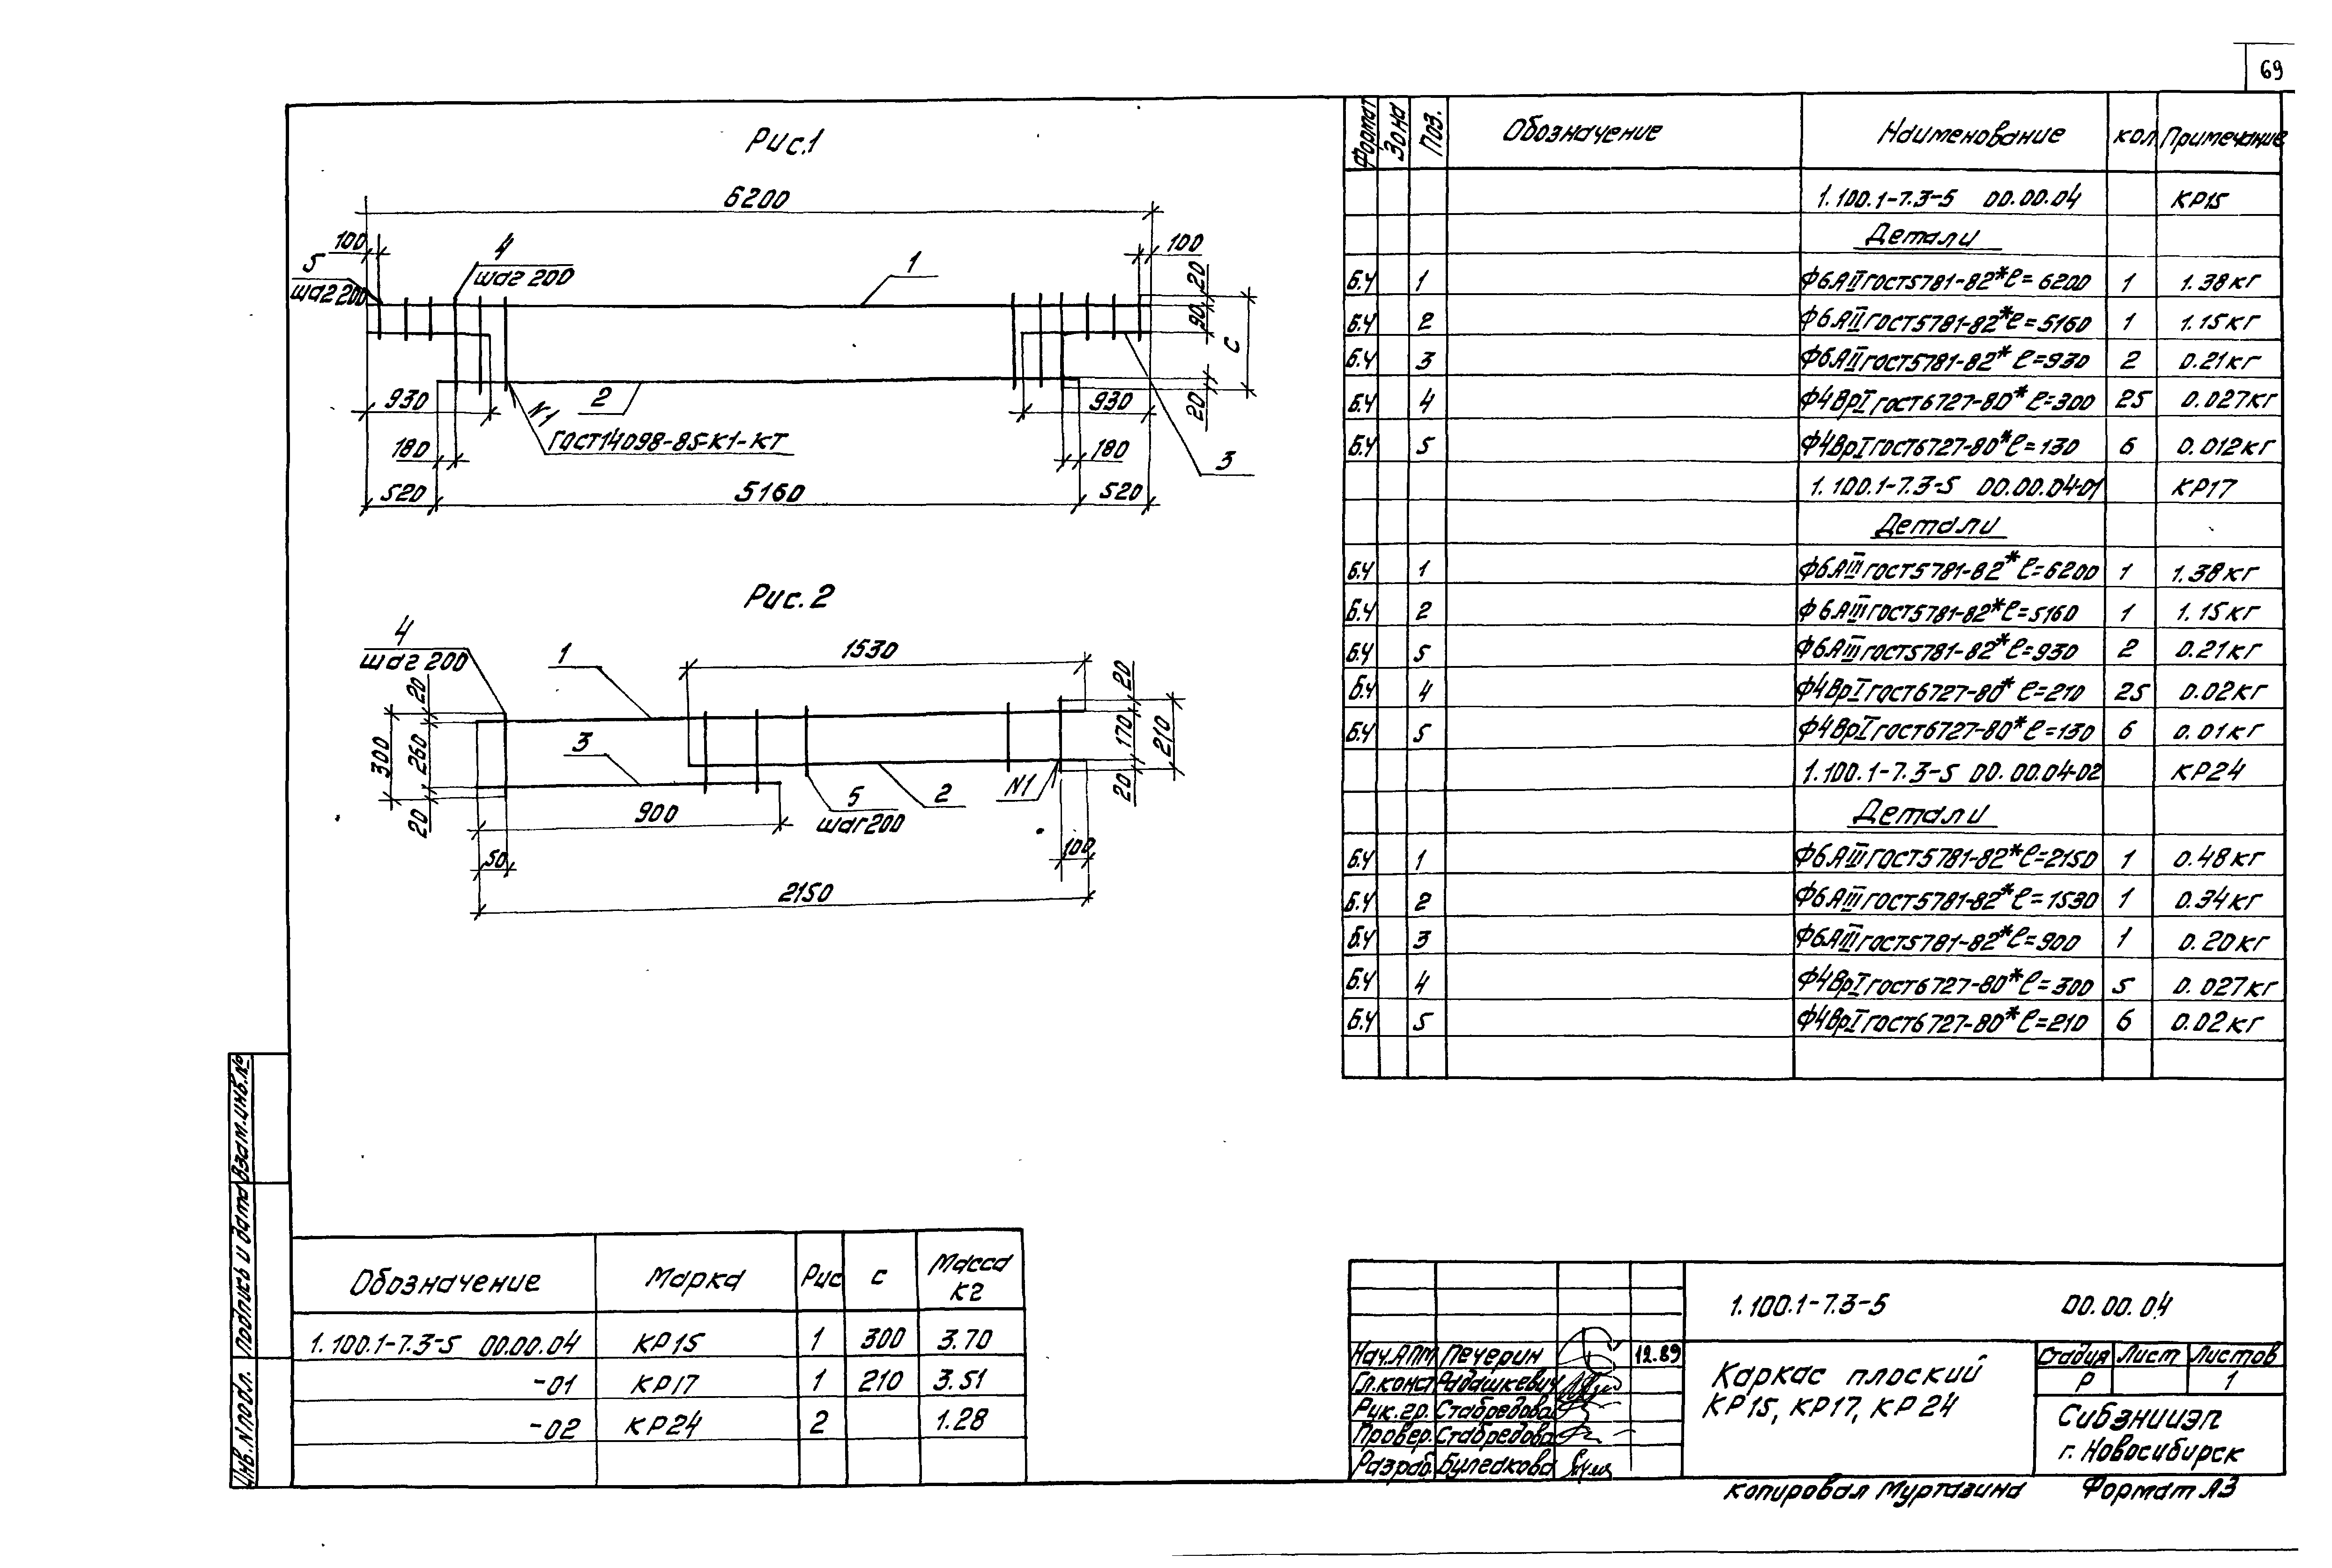 69
Рис.1
6200
100
4
шаг 200
1
100
5
шаг 200
20
90
с
930
N1
2
930
20
180
ГОСТ14098-85-К1-КТ
180
3
520
5160
520
Рис. 2
4
шаг 200
1
1530
20
20
300
260
3
170
210
20
900
5
шаг 200
2
N1
20
50
100
2150
Формат Зона Поз. Обозначение Наименование кол Примечание
1.100.1-7.3-5 00.00.04 КР15
Детали
Б.Ч 1 Ф6АII ГОСТ5781-82* ℓ=6200 1 1.38кг
Б.Ч 2 Ф6АII ГОСТ5781-82* ℓ=5160 1 1.15кг
Б.Ч 3 Ф6АII ГОСТ5781-82* ℓ=930 2 0.21кг
Б.Ч 4 Ф4ВрI ГОСТ6727-80* ℓ=300 25 0.027кг
Б.Ч 5 Ф4ВрI ГОСТ6727-80* ℓ=130 6 0.012кг
1.100.1-7.3-5 00.00.04-01 КР17
Детали
Б.Ч 1 Ф6АIII ГОСТ5781-82* ℓ=6200 1 1.38кг
Б.Ч 2 Ф6АIII ГОСТ5781-82* ℓ=5160 1 1.15кг
Б.Ч 5 Ф6АIII ГОСТ5781-82* ℓ=930 2 0.21кг
Б.Ч 4 Ф4ВрI ГОСТ6727-80* ℓ=210 25 0.02кг
Б.Ч 5 Ф4ВрI ГОСТ6727-80* ℓ=130 6 0.01кг
1.100.1-7.3-5 00.00.04-02 КР24
Детали
Б.Ч 1 Ф6АIII ГОСТ5781-82* ℓ=2150 1 0.48кг
Б.Ч 2 Ф6АIII ГОСТ5781-82* ℓ=1530 1 0.34кг
Б.Ч 3 Ф6АIII ГОСТ5781-82* ℓ=900 1 0.20кг
Б.Ч 4 Ф4ВрI ГОСТ6727-80* ℓ=300 5 0.027кг
Б.Ч 5 Ф4ВрI ГОСТ6727-80* ℓ=210 6 0.02кг
Инв.Nподл. Подпись и дата Взам.инв.№
Обозначение Марка Рис с Масса кг
1.100.1-7.3-5 00.00.04 КР15 1 300 3.70
-01 КР17 1 210 3.51
-02 КР24 2 1.28
1.100.1-7.3-5 00.00.04
Нач.АПМ Печерин 12.89
Гл.конст Радашкевич
Рук.гр. Стабредова
Провер. Стабредова
Разраб. Буледкова
Каркас плоский
КР15, КР17, КР24
Стадия Лист Листов
Р 1
Сибзнииэп
г. Новосибирск
копировал Муртазина Формат А3